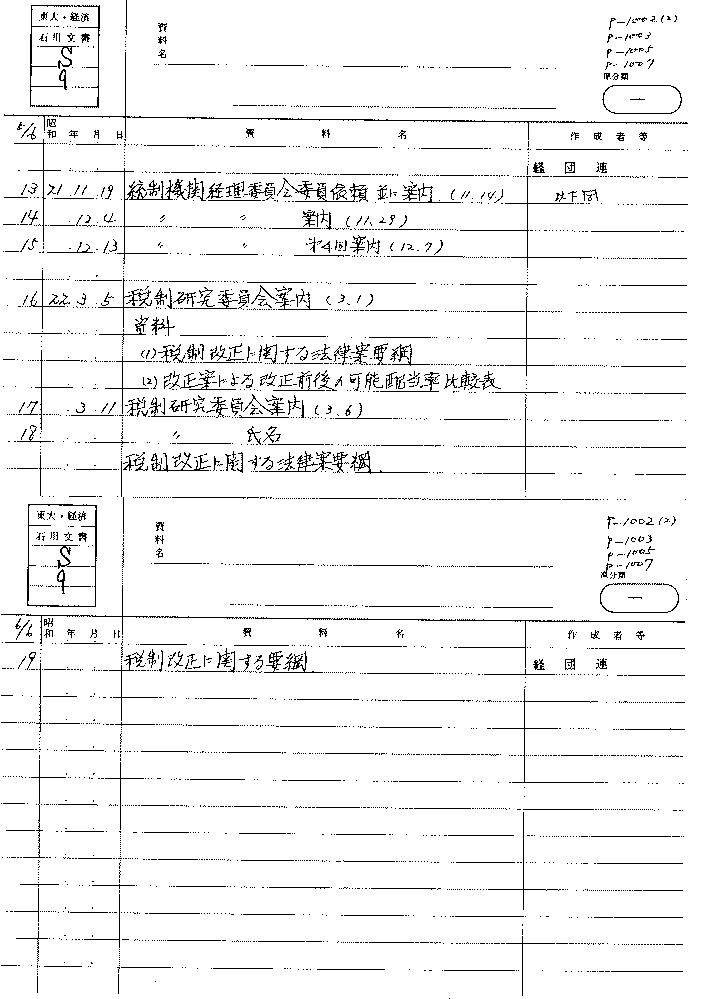 東大・経済
石川文書
S
9
資料名
P-1002(2)
P-1003
P-1005
P-1007
原分類
一
5/6 昭和 年 月 日 資 料 名 作 成 者 等
経 団 連
13 21.11.19 統制機関経理委員会委員依頼 並に案内 (11.14) 以下同
14 .12.4 〃 〃 案内 (11.29)
15 .12.13 〃 〃 第4回案内 (12.7)
16 22.3.5 税制研究委員会案内 (3.1)
資料
(1) 税制改正に関する法律案要綱
(2) 改正案による改正前後の可能配当率比較表
17 .3.11 税制研究委員会案内 (3.6)
18 〃 氏名
税制改正に関する法律案要綱.
東大・経済
石川文書
S
9
資料名
P-1002(2)
P-1003
P-1005
P-1007
原分類
一
6/6 昭和 年 月 日 資 料 名 作 成 者 等
19 税制改正に関する要綱. 経 団 連